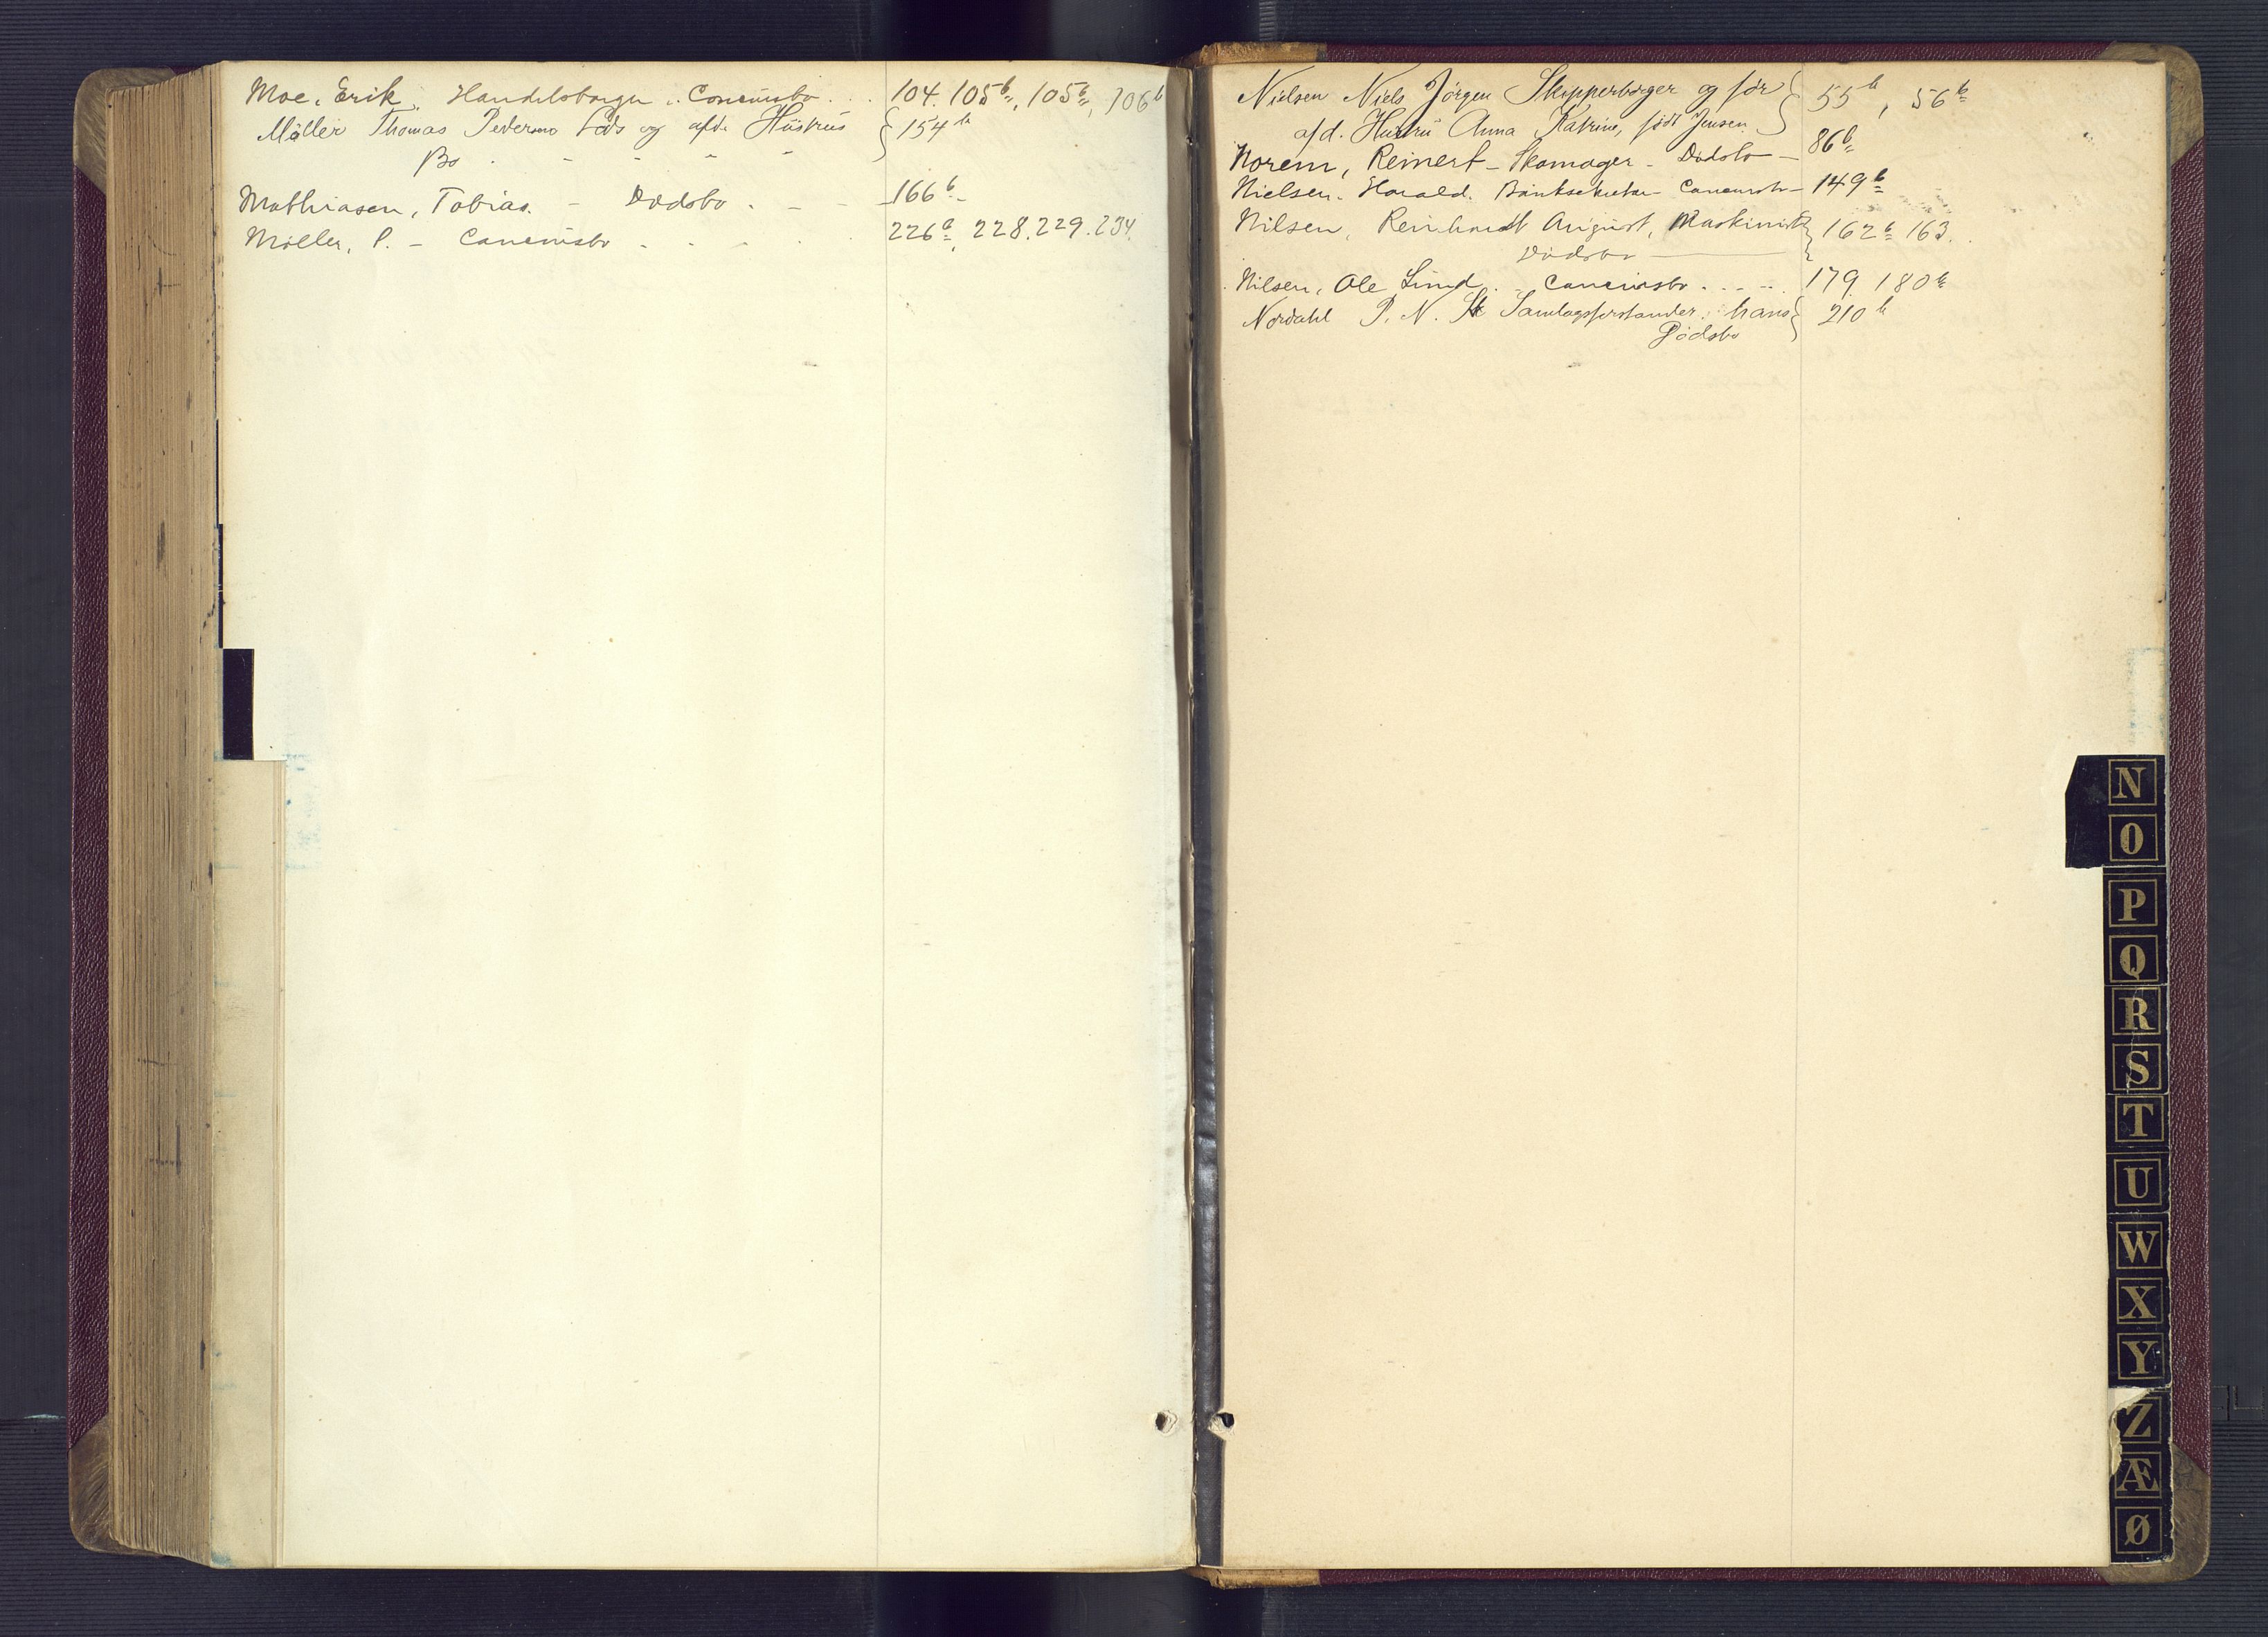 Moe, Erik, Handelsborger .. Concursbo . . . 104. 105b, 105b, 106b
Möller Thomas Pedersen Lods og afd. Hüstrus 154b
Bo . - - - -
Mathiasen, Tobias. - Dødsbo . - - 166b
Møller, P. - Concursbo . . . . 226b, 228. 229. 234.
Nielsen Niels Jörgen Skipperborger og før 55b, 56b
afd. Hustru Anna Katrine, født Jensen
Norem, Reinert - Skomager - Dødsbo - 86b
Nielsen, Harald. Banksekretær - Concursbo - 149b
Nilsen, Reinhardt August, Maskinist 162b 163.
Dødsbo
Nilsen, Ole Lund . - Concursbo . . - . . 179. 180b
Nordahl P. N. Samlagsforstander, hans 210b
Dødsbo
N
O
P
Q
R
S
T
U
W
X
Y
Z
Æ
Ø